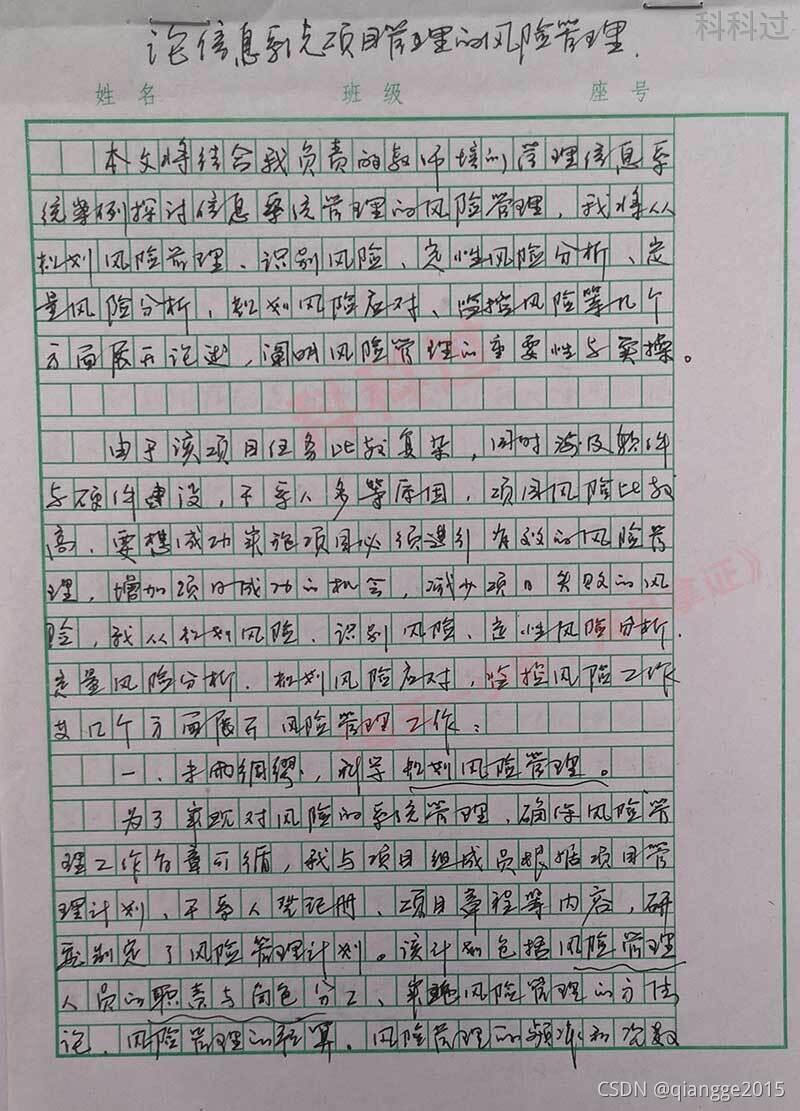 科科过
论信息系统项目管理的风险管理.
姓名 班级 座号
本文将结合我负责的教师培训管理信息系
统案例探讨信息系统管理的风险管理，我将从
规划风险管理、识别风险、定性风险分析、定
量风险分析、规划风险应对、监控风险等几个
方面展开论述，阐明风险管理的重要性与实操。
由于该项目任务比较复杂，同时涉及软件
与硬件建设，干系人多等原因，项目风险比较
高，要想成功实施项目必须进行有效的风险管
理，增加项目成功的机会，减少项目失败的风
险，我从规划风险、识别风险、定性风险分析、
定量风险分析、规划风险应对，监控风险工作
等几个方面展开风险管理工作：
一、未雨绸缪，科学规划风险管理。
为了实现对风险的系统管理，确保风险管
理工作有章可循，我与项目组成员根据项目管
理计划、干系人登记册、项目章程等内容，研
究制定了风险管理计划。该计划包括风险管理
人员的职责与角色分工、实施风险管理的方法
论、风险管理的预算、风险管理的频率和次数
CSDN @qiangge2015